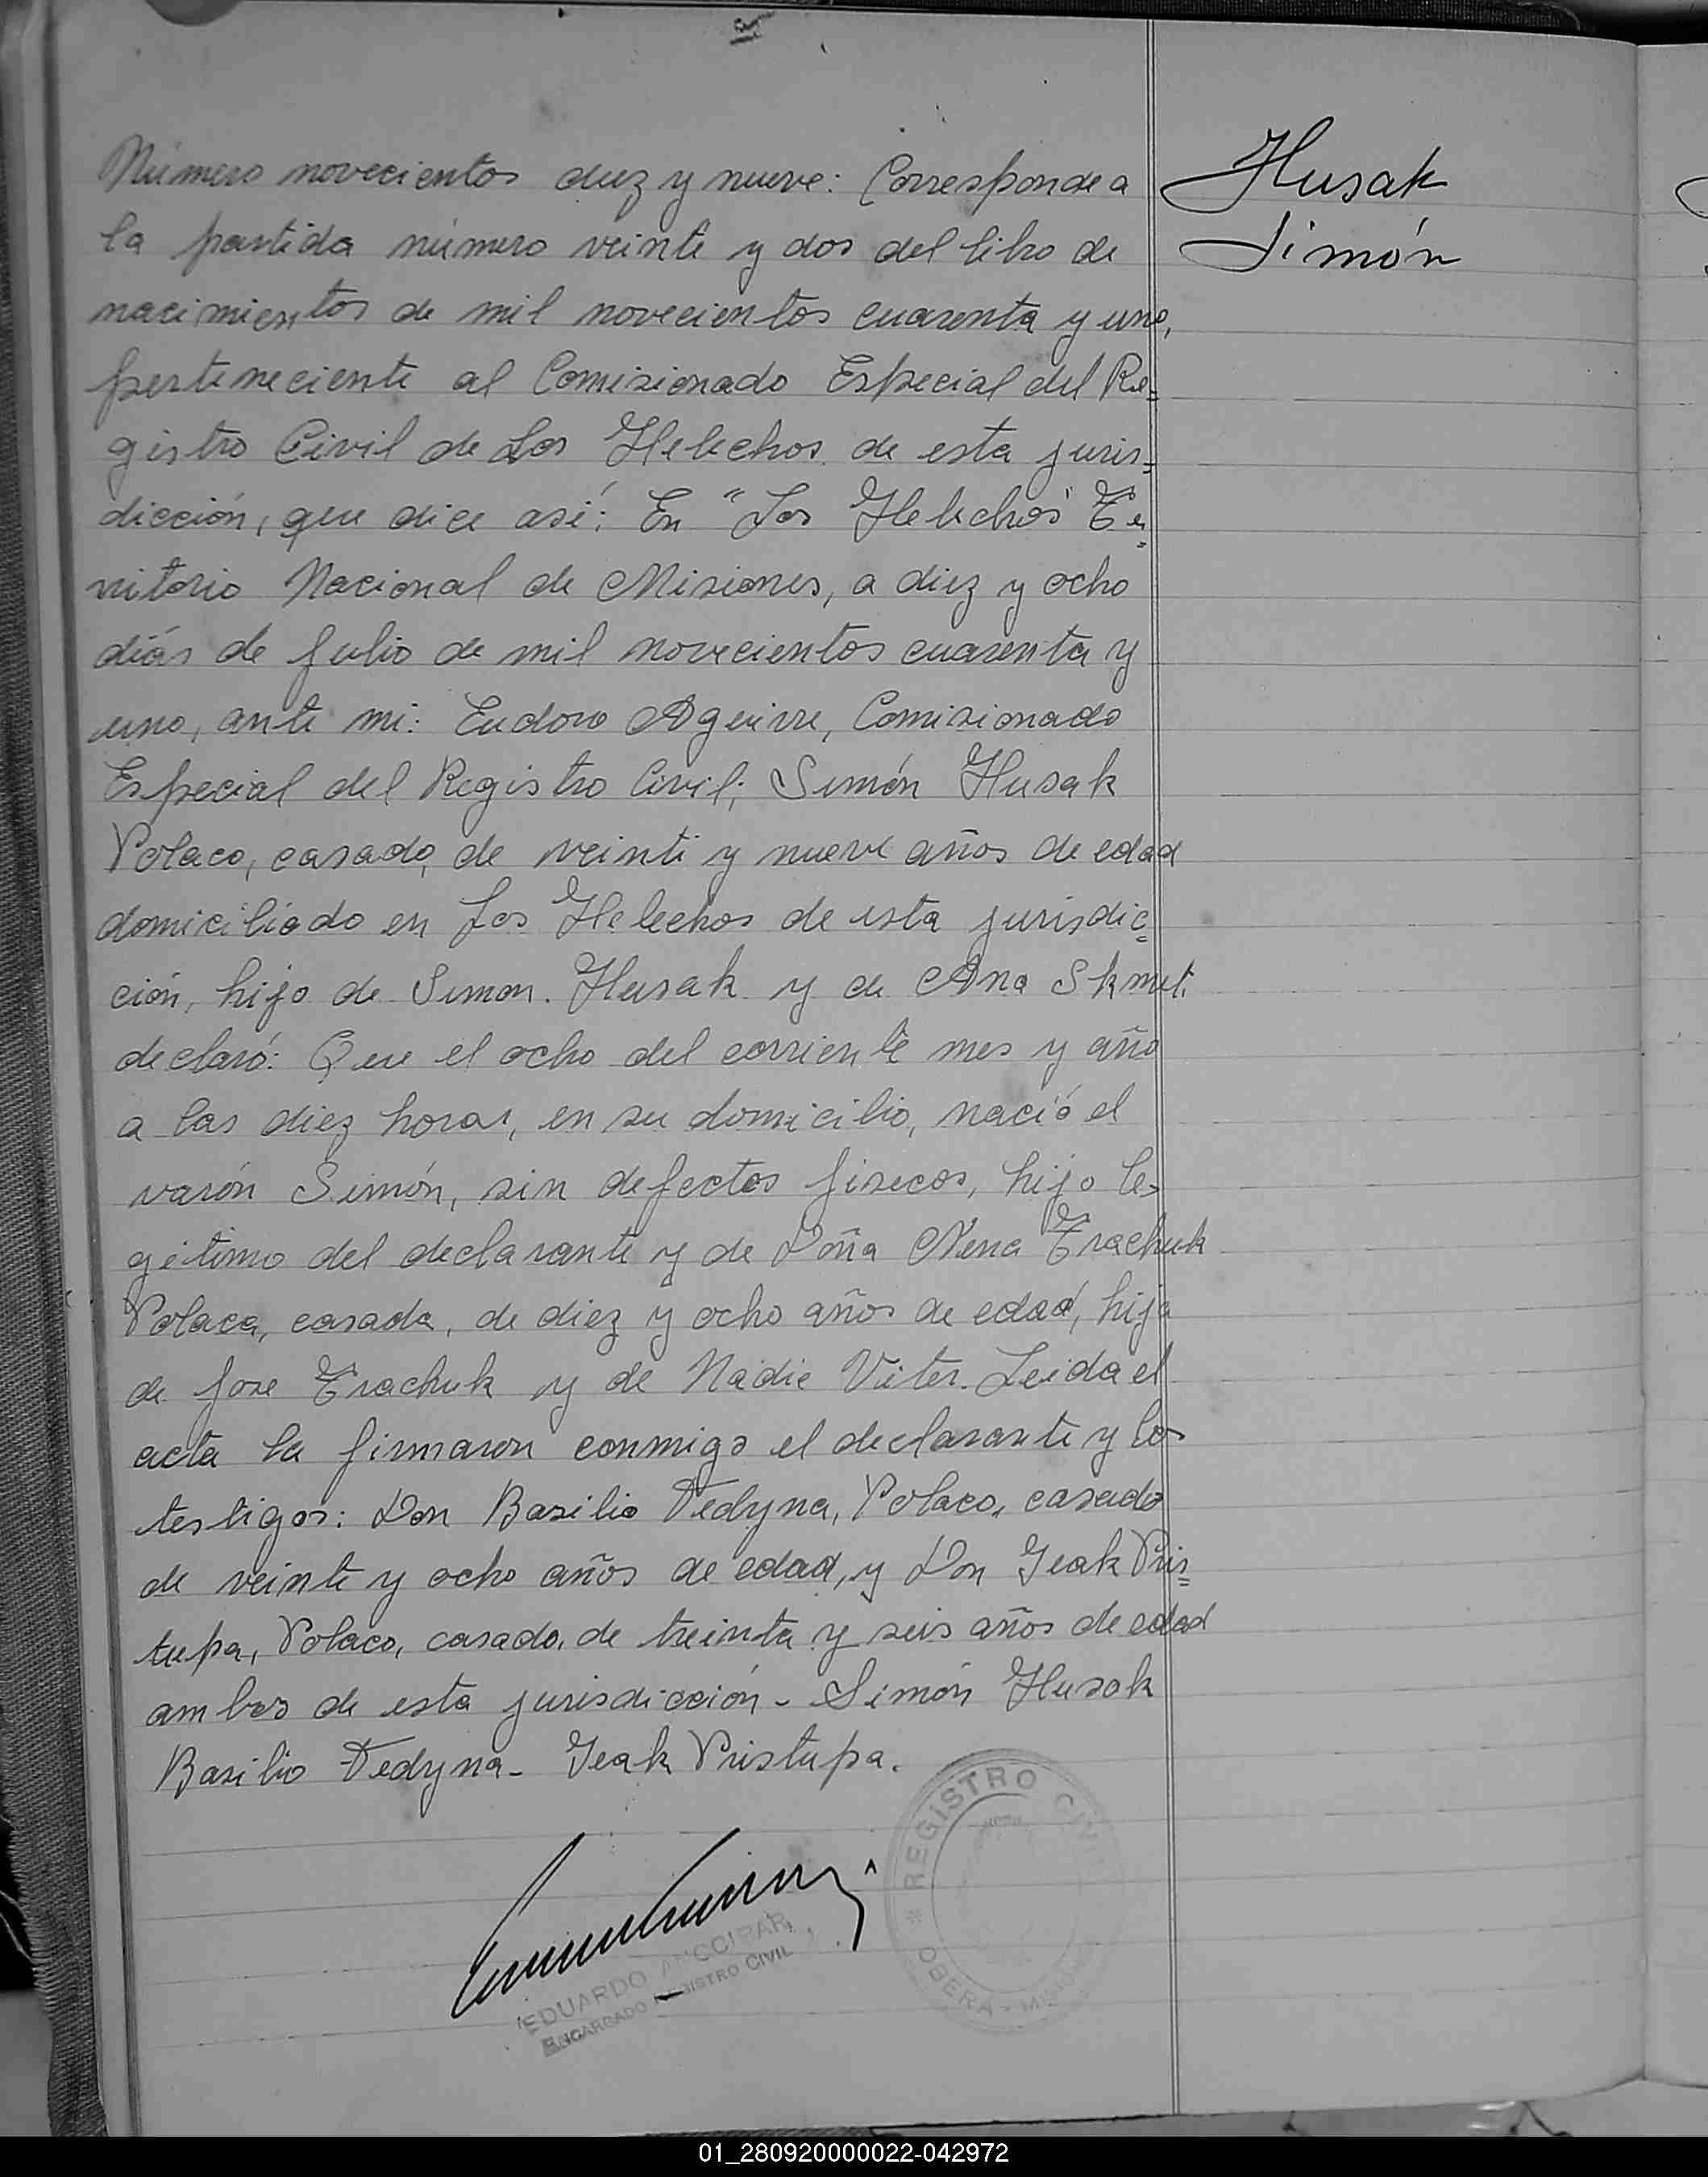 Número novecientos diez y nueve: Corresponde a
la partida número veinte y dos del libro de
nacimientos de mil novecientos cuarenta y uno,
perteneciente al Comisionado Especial del Re=
gistro Civil de Los Helechos de esta juris=
dicción, que dice así: En "Los Helechos" Te=
rritorio Nacional de Misiones, a diez y ocho
días de Julio de mil novecientos cuarenta y
uno, ante mi: Eudoro Aguirre, Comisionado
Especial del Registro Civil; Simón Husak
Polaco, casado, de veinti y nueve años de edad
domiciliado en Los Helechos de esta jurisdic=
ción, hijo de Simon. Husak y de Ana
declaró: Que el ocho del corriente mes y año
a las diez horas, en su domicilio, nació el
varón Simón, sin defectos fisicos, hijo le=
gitimo del declarante y de Doña Nena Trachuk
Polaca, casada, de diez y ocho años de edad, hija
de Jose Trachuk y de Nadie Viter. Leida el
acta la firmaron conmigo el declarante y los
testigos: Don Basilio Dedyna, Polaco, casado
de veinte y ocho años de edad, y Don Jeak Pris=
tupa, Polaco, casado, de treinta y seis años de edad
ambos de esta jurisdicción - Simón Husak
Basilio Dedyna - Jeak Pristupa.
Husak
Simón
REGISTRO CIVIL
OBERA - MISIONES
EDUARDO
ENCARGADO REGISTRO CIVIL
01_280920000022-042972